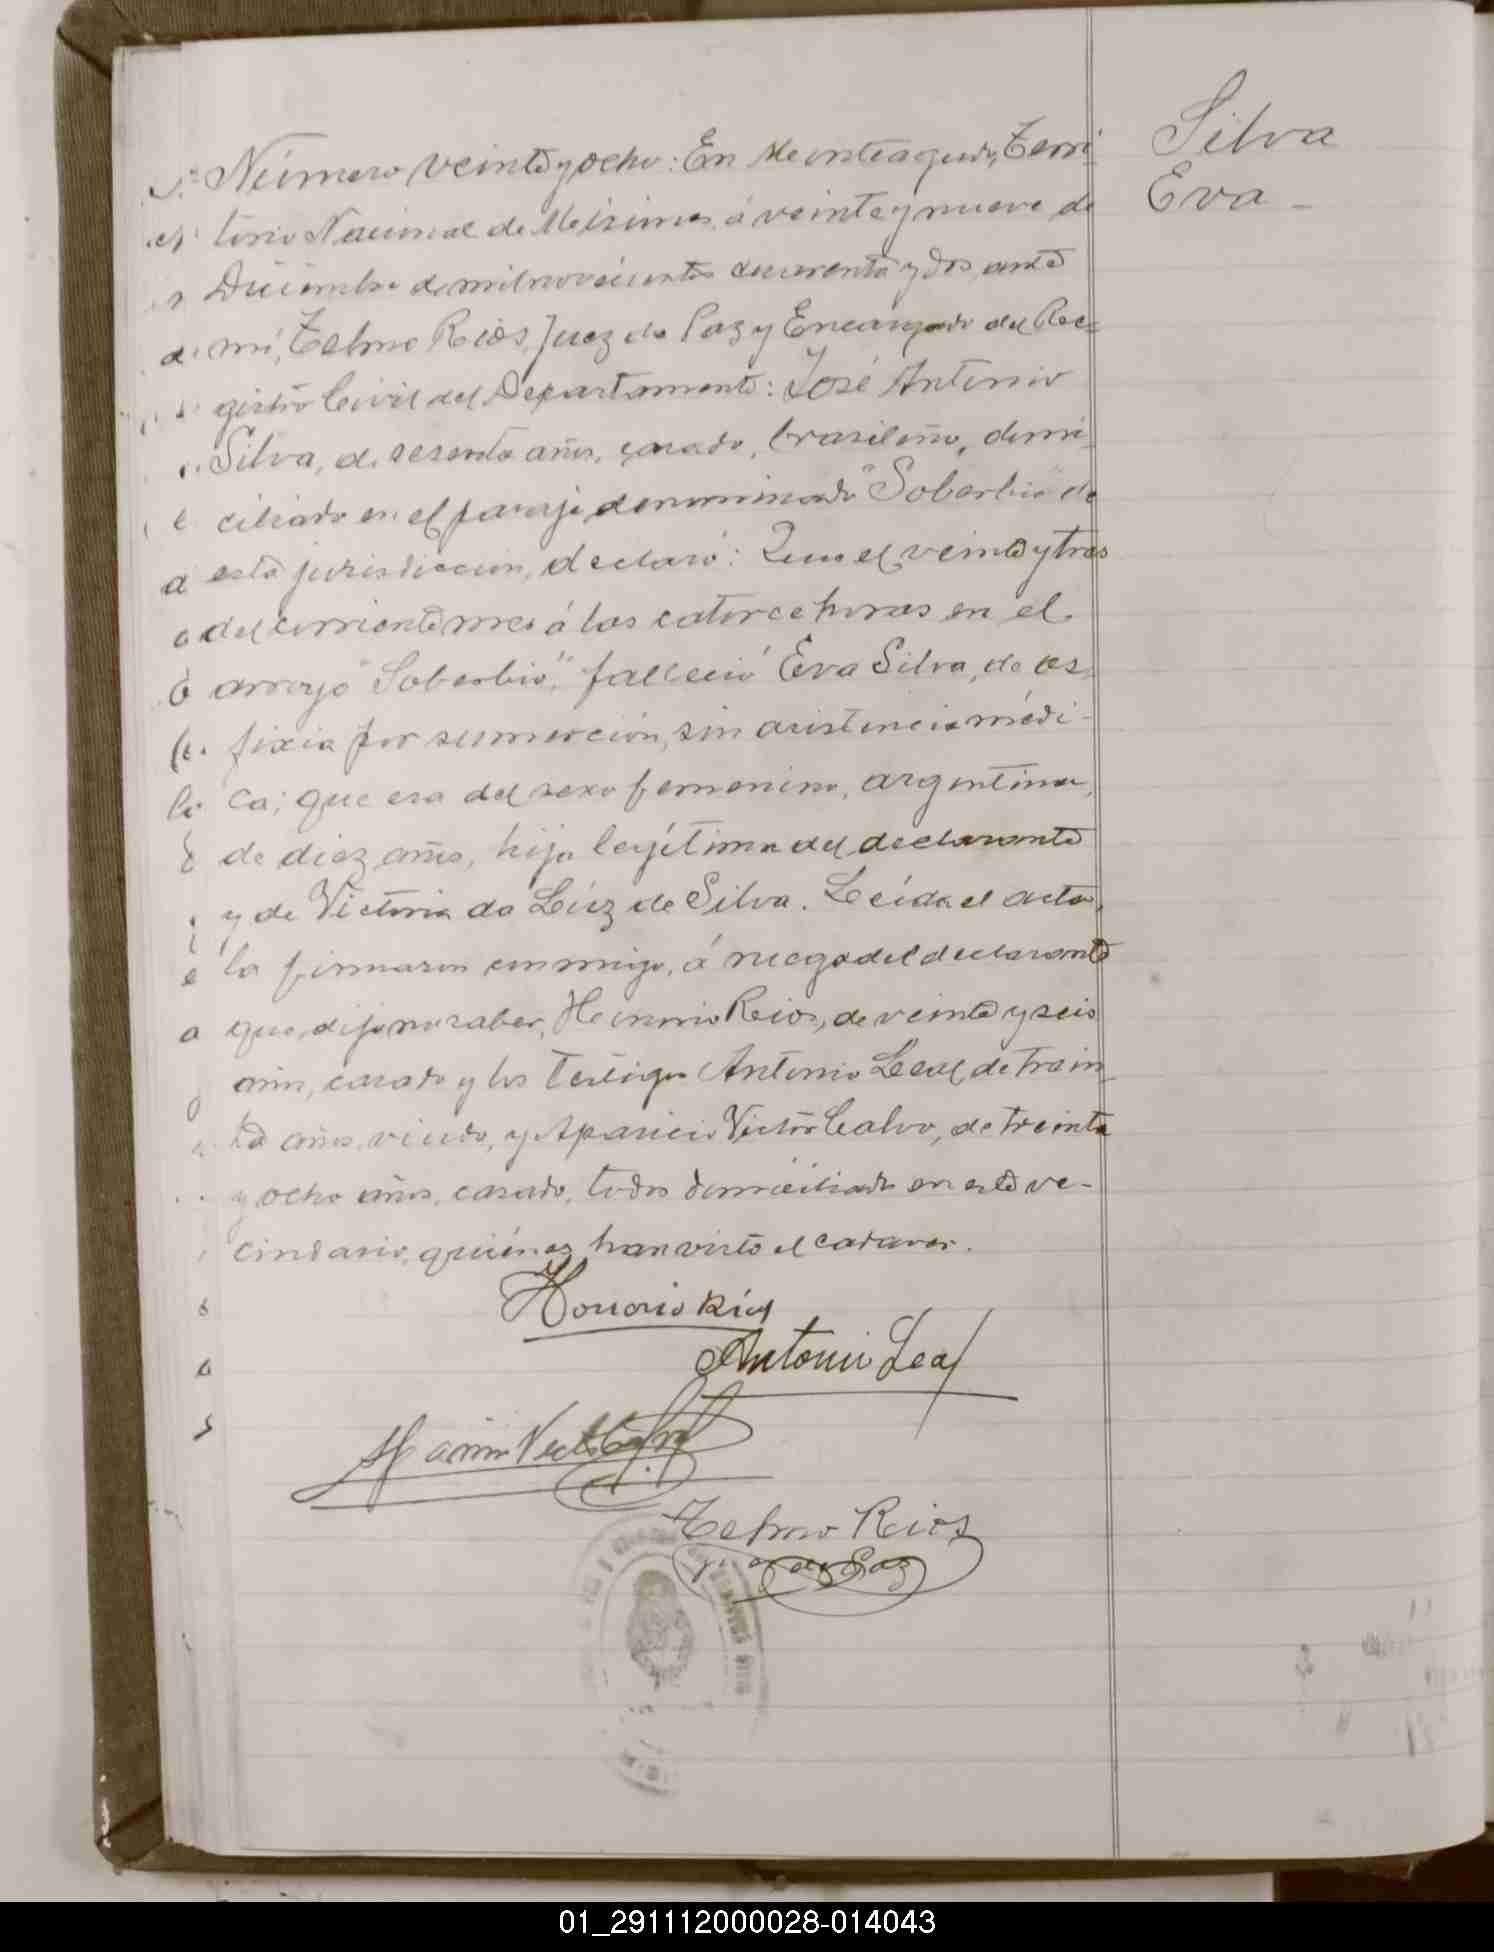 Silva
Eva -
Número veinte y ocho: En Monteagudo, Terri-
torio Nacional de Misiones, á veinte y nueve de
Diciembre de mil novecientos cuarenta y dos, ante
mí, Telmo Rios, Juez de Paz y Encargado del Re-
gistro Civil del Departamento: José Antonio
Silva, de sesenta años, casado, brasileño, domi-
ciliado en el paraje denominado "Soberbio" de
esta jurisdiccion, declaró: Que el veinte y tres
del corriente mes á las catorce horas en el
arroyo "Soberbio", falleció Eva Silva, de as-
fixia por sumerción, sin asistencia médi-
ca; que era del sexo femenino, argentina,
de diez años, hija legítima del declarante
y de Victoria da Luz de Silva. Leída el acta,
la firmaron conmigo, á ruego del declarante
que dijo no saber, Honorio Rios, de veinte y seis
años, casado y los testigos Antonio Leal, de trein-
ta años, viudo, y Aparicio Victor Calvo, de treinta
y ocho años, casado, todos domiciliados en este ve-
cindario, quiénes han visto el cadaver.
Honorio Rios
Antonio Leal
Telmo Rios
Juez de Paz
01_291112000028-014043